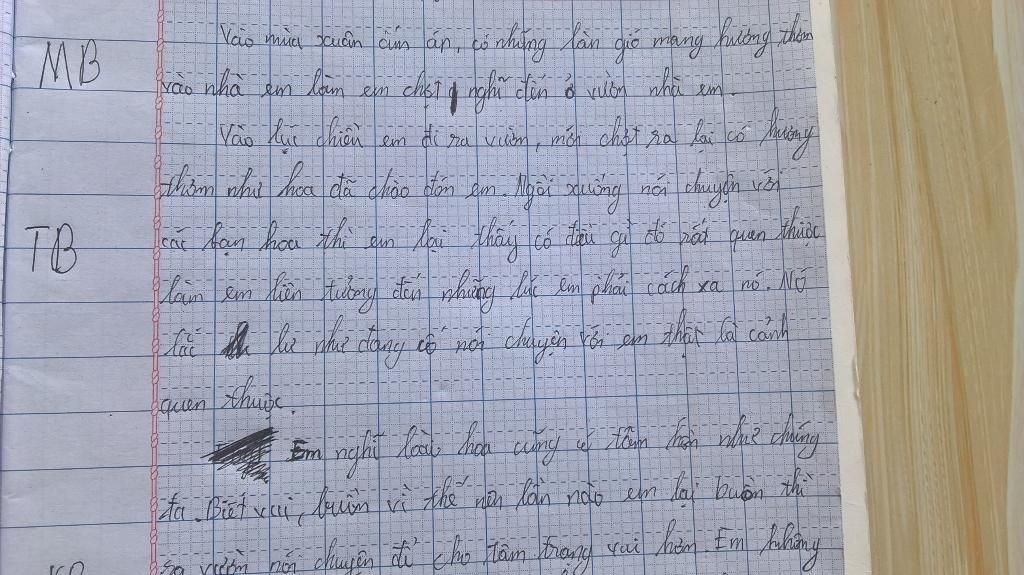 MB
Vào mùa xuân ấm áp, có những làn gió mang hương thơm
vào nhà em làm em chợt nghĩ đến ở vườn nhà em.
Vào lúc chiều em đi ra vườn, mới chợt ra lại có hương
thơm như hoa đã chào đón em. Ngồi xuống nói chuyện với
TB
các bạn hoa thì em lại thấy có điều gì đó rất quen thuộc
làm em liên tưởng đến những lúc em phải cách xa nó. Nó
lắc lư như đang cố nói chuyện với em thật là cảnh
quen thuộc.
Em nghĩ loài hoa cũng có tâm hồn như chúng
ta. Biết vui, buồn vì thế nên lần nào em lại buồn thì
ra vườn nói chuyện để cho tâm trạng vui hơn. Em không